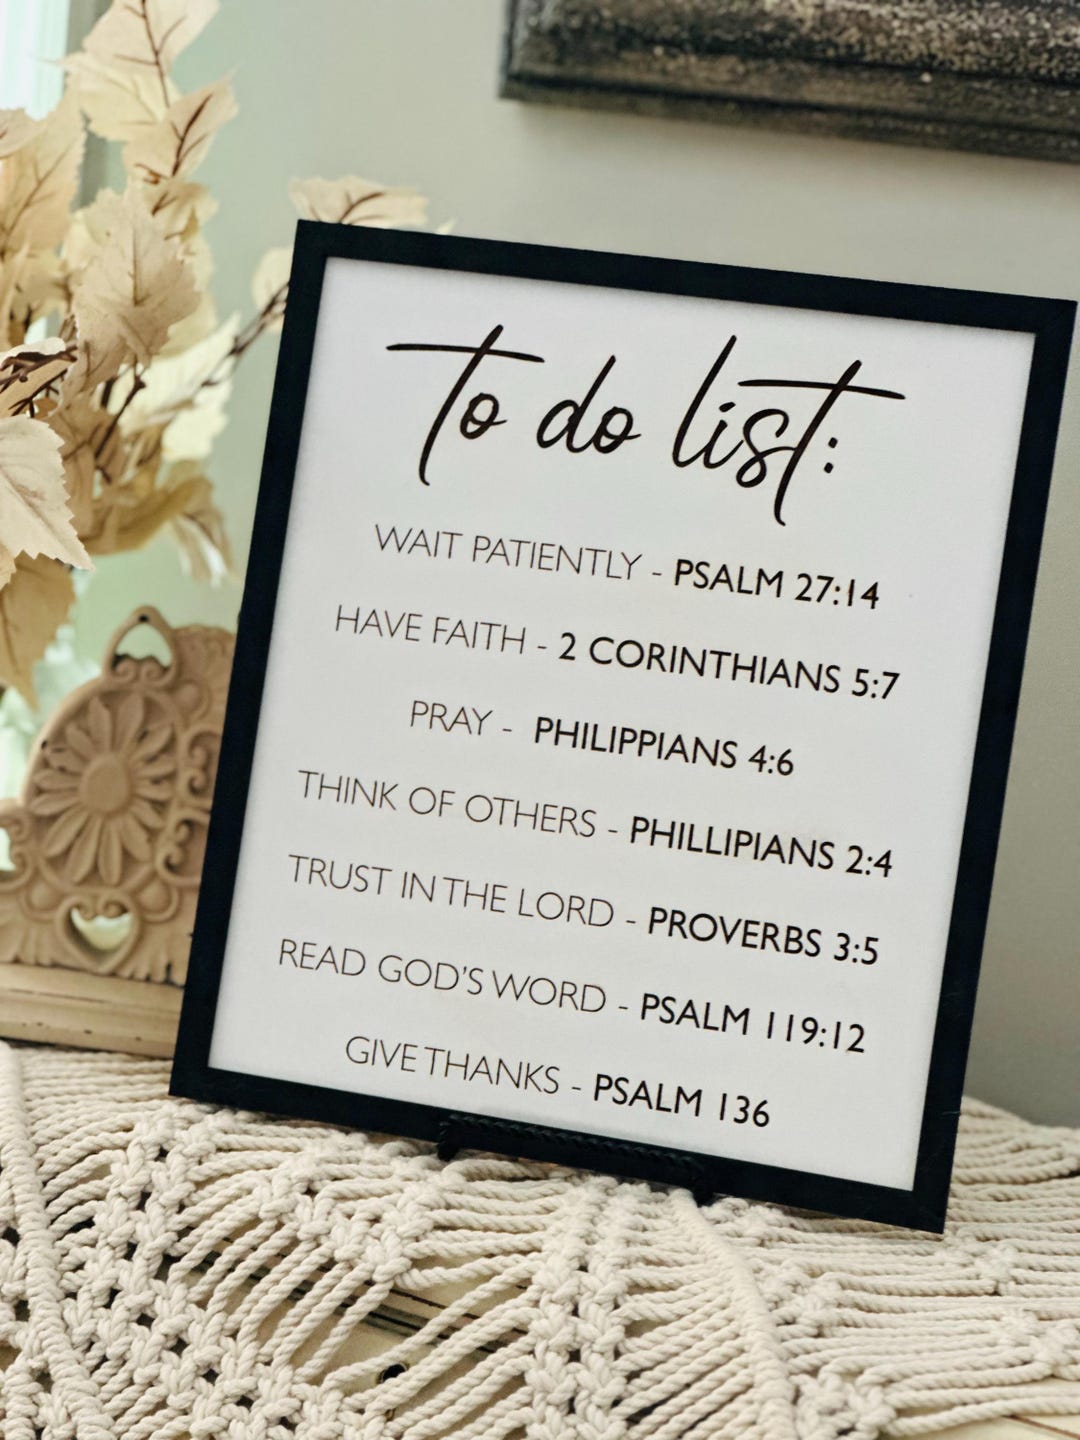 to do list:
WAIT PATIENTLY - PSALM 27:14
HAVE FAITH - 2 CORINTHIANS 5:7
PRAY - PHILIPPIANS 4:6
THINK OF OTHERS - PHILLIPIANS 2:4
TRUST IN THE LORD - PROVERBS 3:5
READ GOD'S WORD - PSALM 119:12
GIVE THANKS - PSALM 136